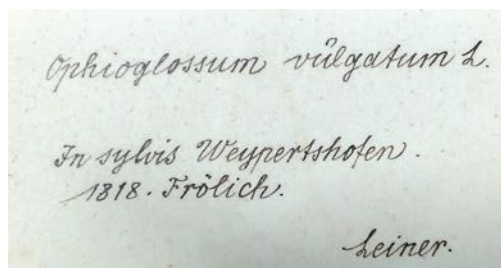 Ophioglossum vûlgatum L.
In sylvis Weypertshofen.
1818. Frölich.
Leiner.